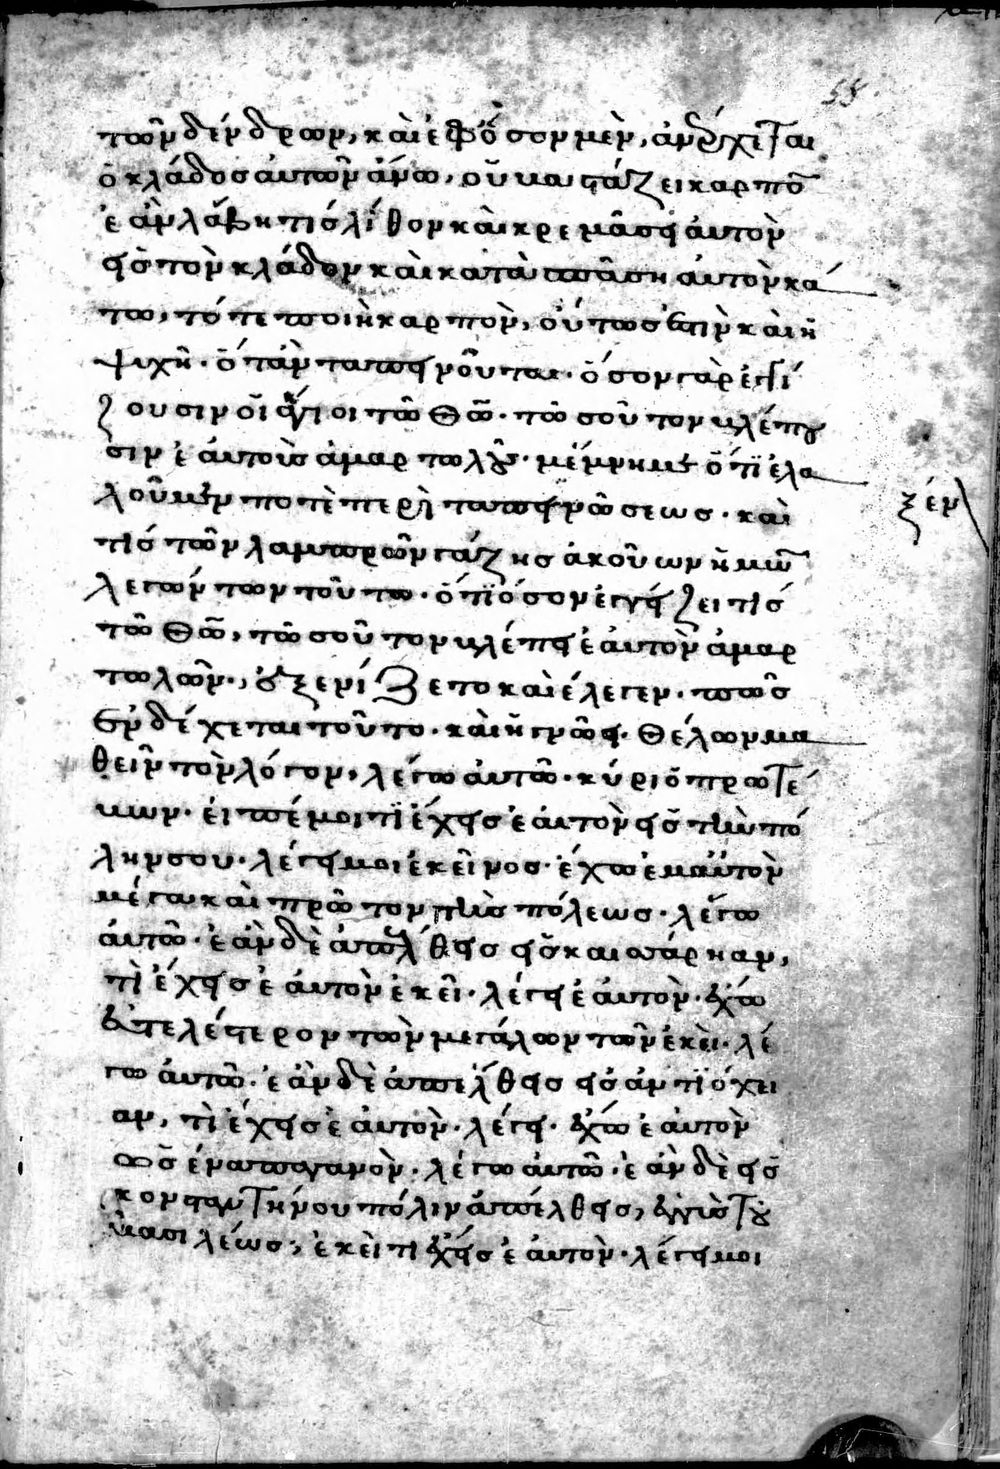 58
τῶν δένδρων, καὶ ἐφ ὅσον μὲν, ἀνέρχεται
ὁ κλάδος ἀυτῶν ἄνω, οὒ βαστάζει καρπὸ
ἐὰν λάβη τίς λίθον καὶ κρεμᾶσει ἀυτὸν
εἰς τὸν κλάδον καὶ κατασπᾶση ἀυτὸν κά
τω, τότε ποιῆ καρπὸν, οὕτως ἐστὶν καὶ ἡ
ψιχῆ. ὅταν ταπεινοῦται. ὅσον γὰρ ἐγγί
ζουσιν οἵ ἅγιοι τῶ Θῶ. τῶσοῦτον βλέπου
σιν ἑάυτοὺς ἁμαρτολούς. μέμνημαι ὅτϊ ἐλα
λοῦμεν ποτὲ περὶ ταπεινῶσεως. καὶ
τίς τῶν λαμπρῶν γάζης ἀκοῦων ἡμῶν
λεγώντων τοῦτω. ὅτϊ ὅσον ἐγγίζει τίς
τῶ Θῶ, τῶσοῦτον βλέπει ἑαυτὸν ἁμαρ
τωλῶν., ἐξενίζετο καὶ ἔλεγεν. πῶς
ἐνδέχεται τοῦτο. καὶ ἠγνῶει. Θέλων μα
θεῖν τὸν λόγον, λέγω ἀυτῶ. κύριὁ πρωτέ
βων. ἐιπέ μοι τϊ ἔχεις ἑαυτὸν εἰς τὴν πό
λην σου. λέγει μοι ἐκεῖνος. ἔχω ἐμαϋτὸν
μέγα καὶ πρῶτον τῆς πόλεως. λέγω
ἀυτῶ. ἐὰν δὲ ἀπέλθεις εἰς καισάρηαν,
τὶ ἔχεις ἑάυτὸν ἐκεῖ. λέγει ἑάυτὸν. ἔχω
ἐυτελέστερον τῶν μεγάλων τῶν ἐκεὶ. λέ
γω ἀυτῶ. ἐὰν δὲ ἀπέλθεις εἰς ἀντϊόχει
αν, τὶ ἔχεις ἑάυτὸν. λέγει. ἔχω ἑάυτὸν
ὡς ἕνα παγανὸν. λέγω ἀυτῶ. ἐὰν δὲ εἰς
κονσταντηνου πόλιν ἀπέλθεις, ἐγγὺς τοῦ
βασιλέως, ἐκεὶ τι ἔχεις ἑάυτὸν. λέγει μοι
ξέν